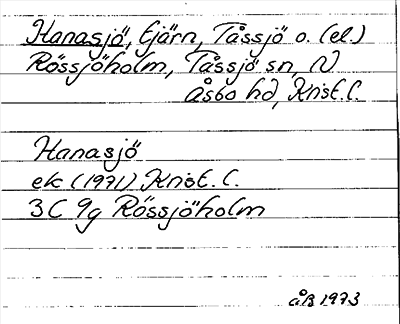 Hanasjö, tjärn, Tåssjö o. (el.)
Rössjöholm, Tåssjö sn, N.
Åsbo hd, Krist. l.
Hanasjö
ek (1971) Krist. l.
3C 9g Rössjöholm
åB 1973